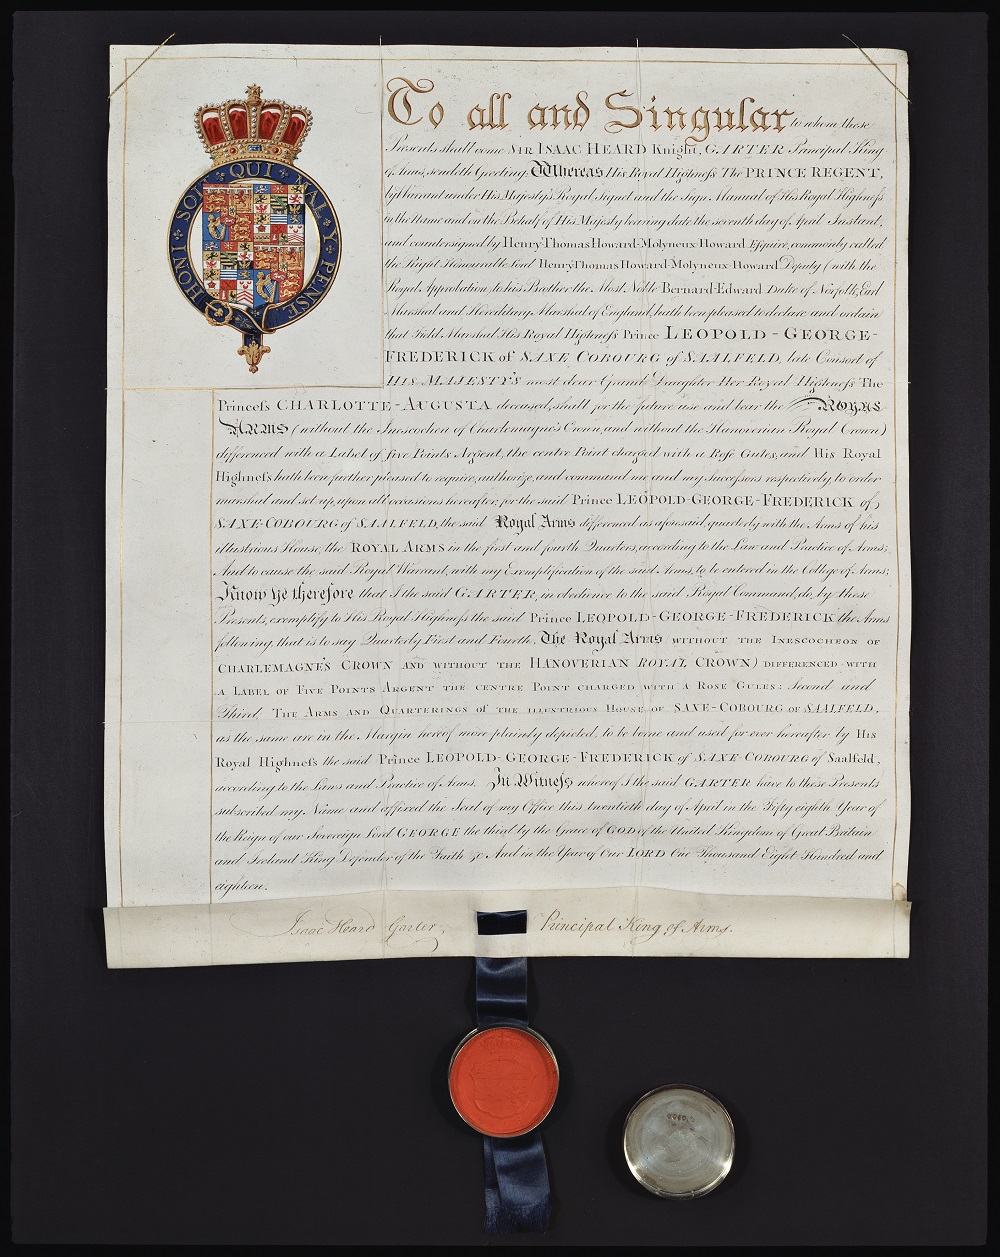 HONI · SOIT · QUI · MAL · Y · PENSE
To all and Singular to whom these
Presents shall come SIR ISAAC HEARD Knight, GARTER Principal King
of Arms, sendeth Greeting: Whereas His Royal Highness The PRINCE REGENT,
by Warrant under His Majesty's Royal Signet and the Sign Manual of His Royal Highness
in the Name and on the Behalf of His Majesty bearing date the seventh day of April Instant,
and countersigned by Henry Thomas Howard-Molyneux-Howard Esquire, commonly called
the Right Honourable Lord Henry Thomas Howard-Molyneux-Howard Deputy (with the
Royal Approbation) to his Brother the Most Noble Bernard-Edward Duke of Norfolk, Earl
Marshal and Hereditary Marshal of England, hath been pleased to declare and ordain
that Field Marshal His Royal Highness Prince LEOPOLD-GEORGE-
FREDERICK of SAXE COBOURG of SAALFELD, late Consort of
HIS MAJESTY'S most dear Grand Daughter Her Royal Highness The
Princess CHARLOTTE-AUGUSTA deceased, shall for the future use and bear the ROYAL
ARMS (without the Inescocheon of Charlemagne's Crown, and without the Hanoverian Royal Crown)
differenced with a Label of five Points Argent, the centre Point charged with a Rose Gules, and His Royal
Highness hath been further pleased to require, authorize, and command me and my Successors respectively, to order
marshal and set up, upon all occasions hereafter, for the said Prince LEOPOLD-GEORGE-FREDERICK of
SAXE-COBOURG of SAALFELD, the said Royal Arms differenced as aforesaid, quarterly with the Arms of his
illustrious House, the ROYAL ARMS in the first and fourth Quarters, according to the Law and Practice of Arms;
And to cause the said Royal Warrant, with my Exemplification of the said Arms, to be entered in the College of Arms;
Know Ye therefore that I the said GARTER, in obedience to the said Royal Command, do, by these
Presents, exemplify to His Royal Highness the said Prince LEOPOLD-GEORGE-FREDERICK the Arms
following, that is to say Quarterly First and Fourth, The Royal Arms WITHOUT THE INESCOCHEON OF
CHARLEMAGNE'S CROWN AND WITHOUT THE HANOVERIAN ROYAL CROWN) DIFFERENCED WITH
A LABEL OF FIVE POINTS ARGENT THE CENTRE POINT CHARGED WITH A ROSE GULES: Second and
Third, THE ARMS AND QUARTERINGS OF THE ILLUSTRIOUS HOUSE OF SAXE-COBOURG OF SAALFELD,
as the same are in the Margin hereof more plainly depicted, to be borne and used for ever hereafter by His
Royal Highness the said Prince LEOPOLD-GEORGE-FREDERICK of SAXE-COBOURG of Saalfeld,
according to the Laws and Practice of Arms. In Witness whereof I the said GARTER have to these Presents
subscribed my Name and affixed the Seal of my Office this twentieth day of April in the Fifty eighth Year of
the Reign of our Sovereign Lord GEORGE the third by the Grace of GOD of the United Kingdom of Great Britain
and Ireland King Defender of the Faith &c And in the Year of Our LORD One Thousand Eight Hundred and
eighteen.
Isaac Heard Garter Principal King of Arms.